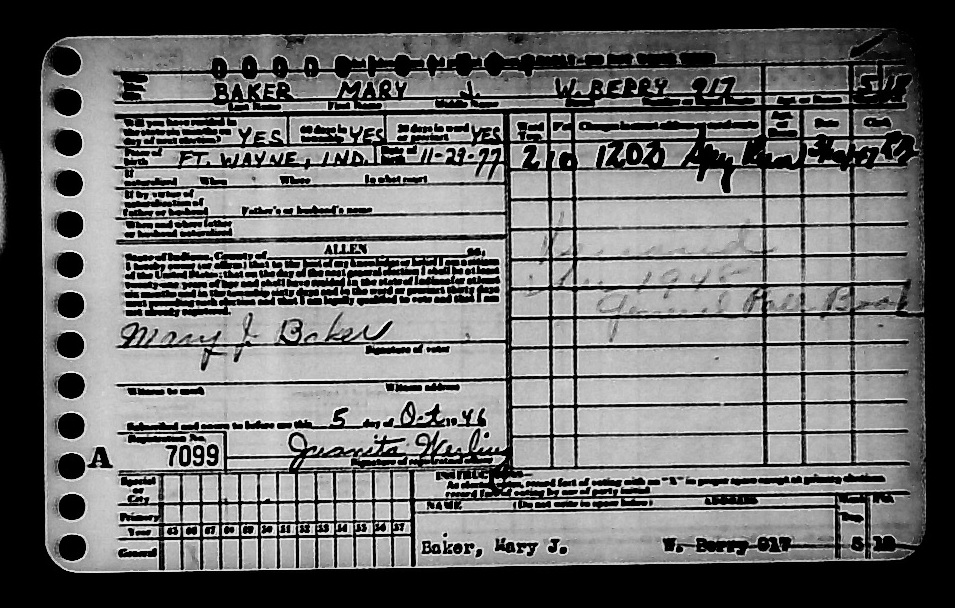 BAKER MARY J. W. BERRY 917 5 18
Last Name First Name Middle Name
Will you have resided in the state six months on day of next election? YES 60 days in township YES 30 days in ward or precinct YES
Date Clerk
Place of Birth FT. WAYNE, IND. Date of Birth 11-29-77 2 10 1202
If naturalized When Where In what court
If by virtue of naturalization of father or husband Father's or husband's name
When and where father or husband naturalized
State of Indiana, County of ALLEN ss.
I hereby swear (or affirm) that to the best of my knowledge or belief I am a citizen
of the United States; that on the day of the next general election I shall be at least
twenty-one years of age and shall have resided in the state of Indiana for at least
six months and in the township sixty days and in the ward or precinct thirty days
next preceding such election and that I am legally qualified to vote and that I am
not already registered.
1948
General Poll Book
Mary J. Baker
Signature of voter
Witness to mark Witness address
Subscribed and sworn to before me this 5 day of Oct 1946
Registration No.
A 7099 Juanita Werling
Signature of registration
INSTRUCTIONS
As election, record fact of voting with an "X" in proper space except at primary elections
record fact of voting by use of party initial
Special
City
Primary
Year 45 46 47 48 49 50 51 52 53 54 55 56 57
General
NAME (Do not write in space below) ADDRESS Ward Twp. Pct.
Baker, Mary J. W. Berry 917 5 18